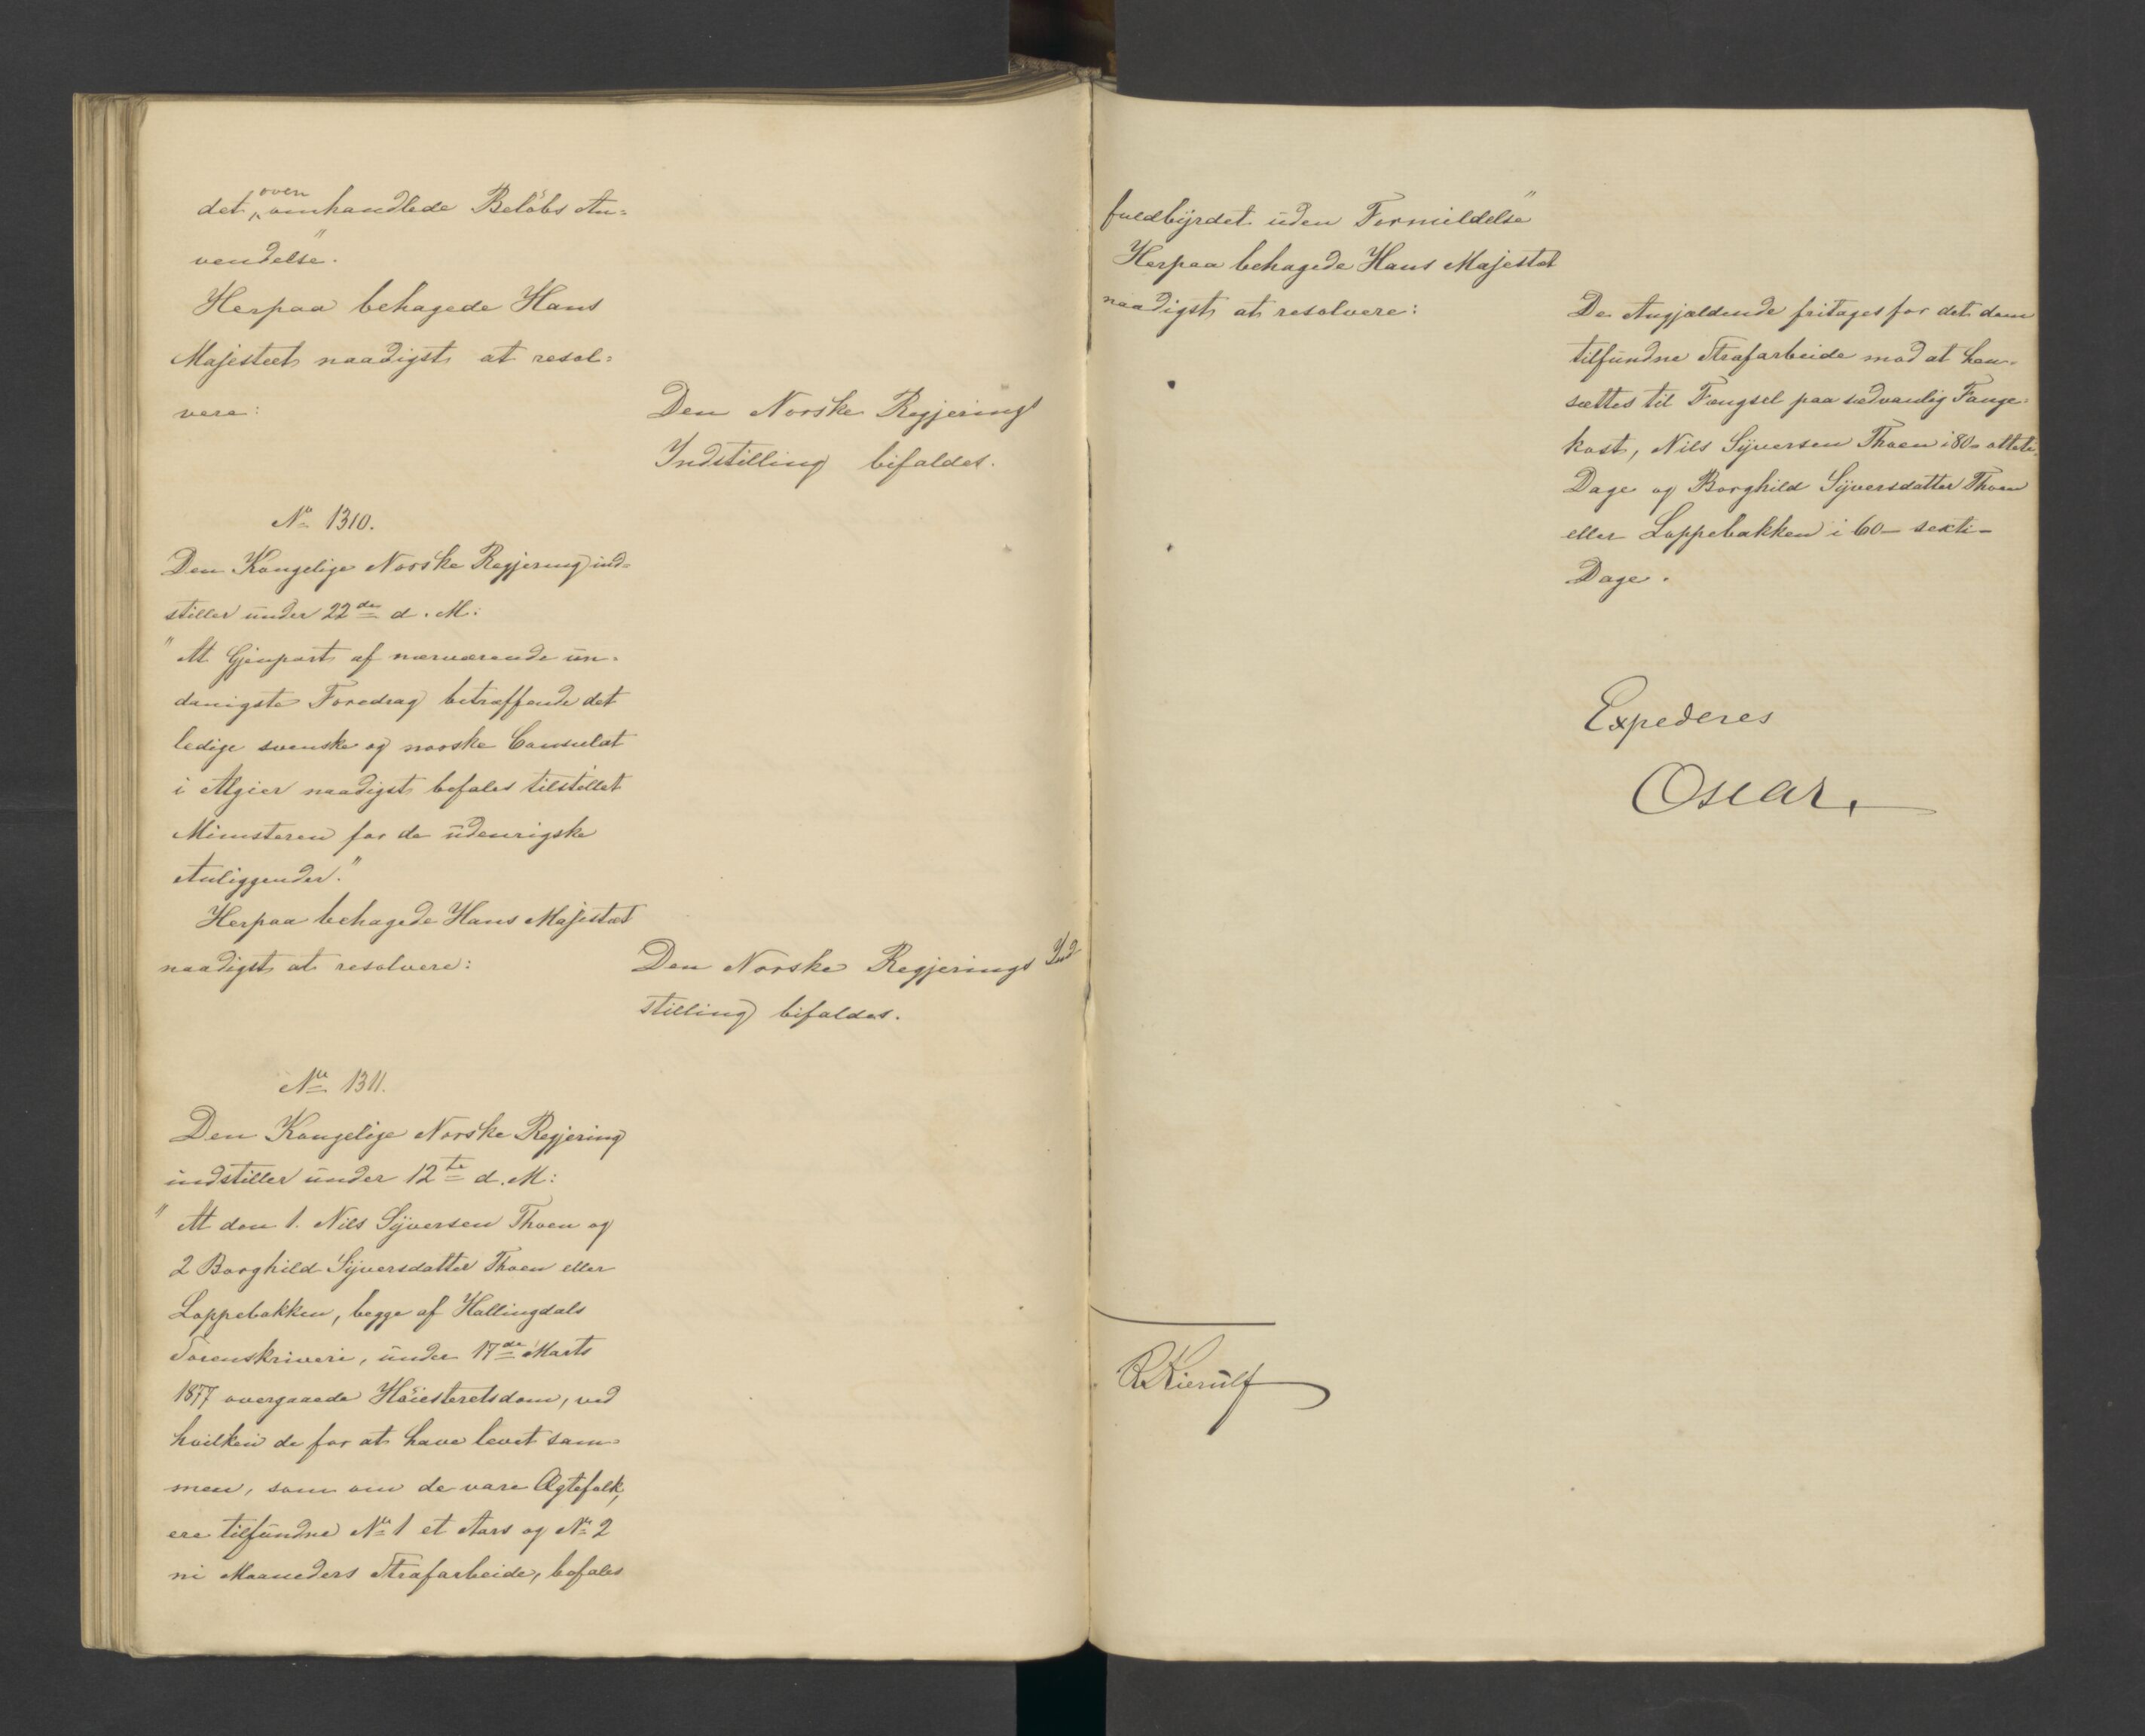 det oven omhandlede Beløbs An=
vendelse."
Herpaa behagede Hans
Majestæt naadigst at resol=
vere:
Den Norske Regjerings
Indstilling bifaldes.
No 1310.
Den Kongelige Norske Regjering ind=
stiller under 22de d. M:
"At Gjenpart af nærværende un=
danigste Foredrag betræffende det
ledige svenske og norske Consulat
i Algier naadigst befales tilstillet
Ministeren for de udenrigske
Anliggender."
Herpaa behagede Hans Majestæt
naadigst at resolvere:
Den Norske Regjerings Ind
stilling bifaldes.
No 1311.
Den Kongelige Norske Regjering
indstiller under 12te d. M:
"At den 1. Nils Syversen Thoen og
2 Borghild Syversdatter Thoen eller
Loppebakken, begge af Hallingdals
Sorenskriveri, under 17de Marts
1877 overgaaede Høiesteretsdom, ved
hvilken de for at have levet sam=
men, som om de vare Ægtefolk,
ere tilfundne No 1 et Aars og No 2
ni Maaneders Strafarbeide, befales
fuldbyrdet uden Formildelse"
Herpaa behagede Hans Majestæt
naadigst at resolvere:
De Angjældende fritages for det dem
tilfundne Strafarbeide mod at hen=
sættes til Fængsel paa sædvanlig Fange=
kost, Nils Syversen Thoen i 80 - otteti -
Dage og Borghild Syversdatter Thoen
eller Loppebakken i 60 - sexti -
Dage.
Expederes
Oscar.
R Kierulf